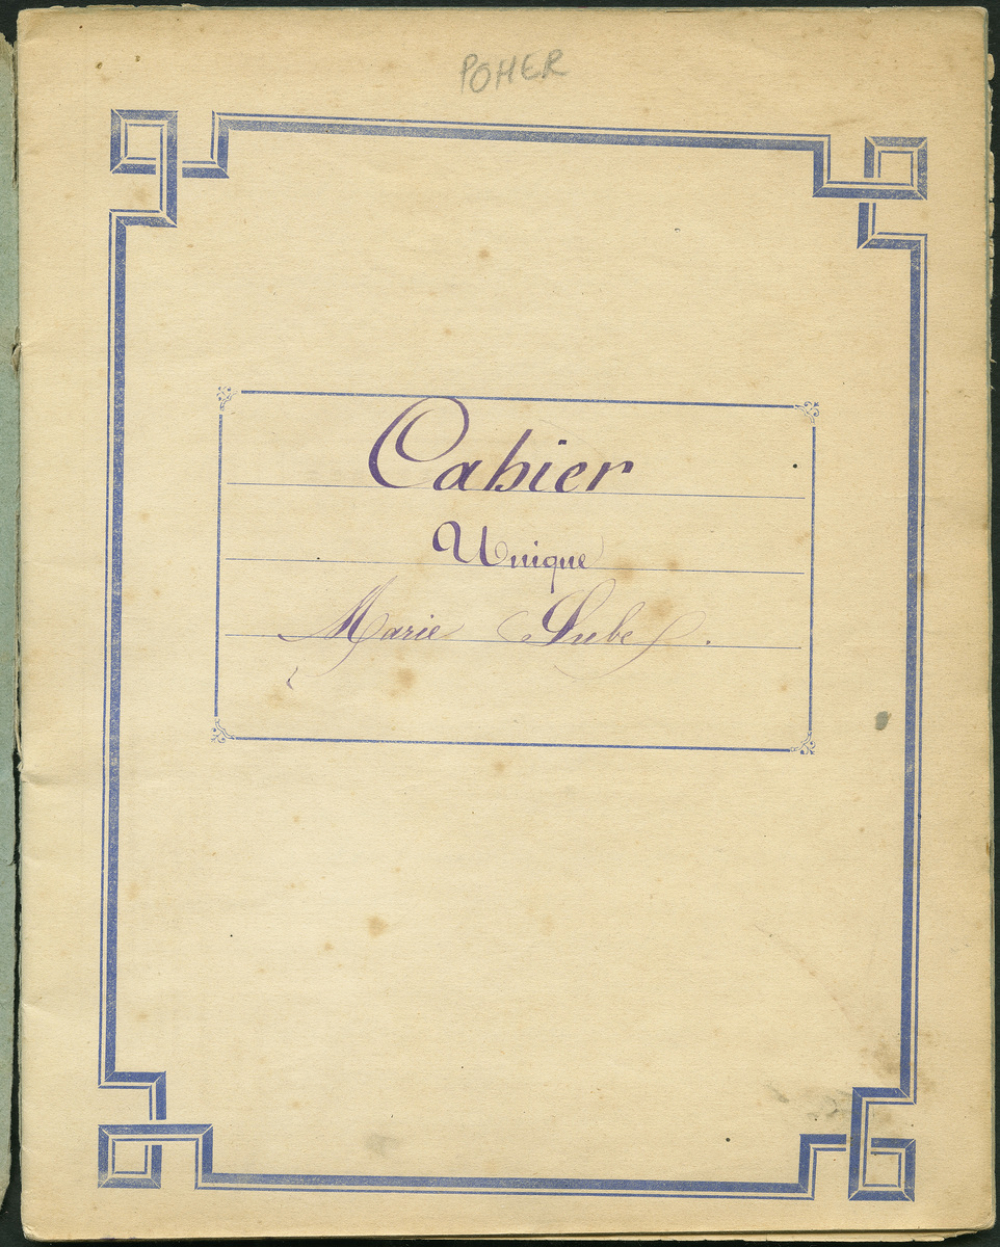 POHER
Cahier
Unique
Marie